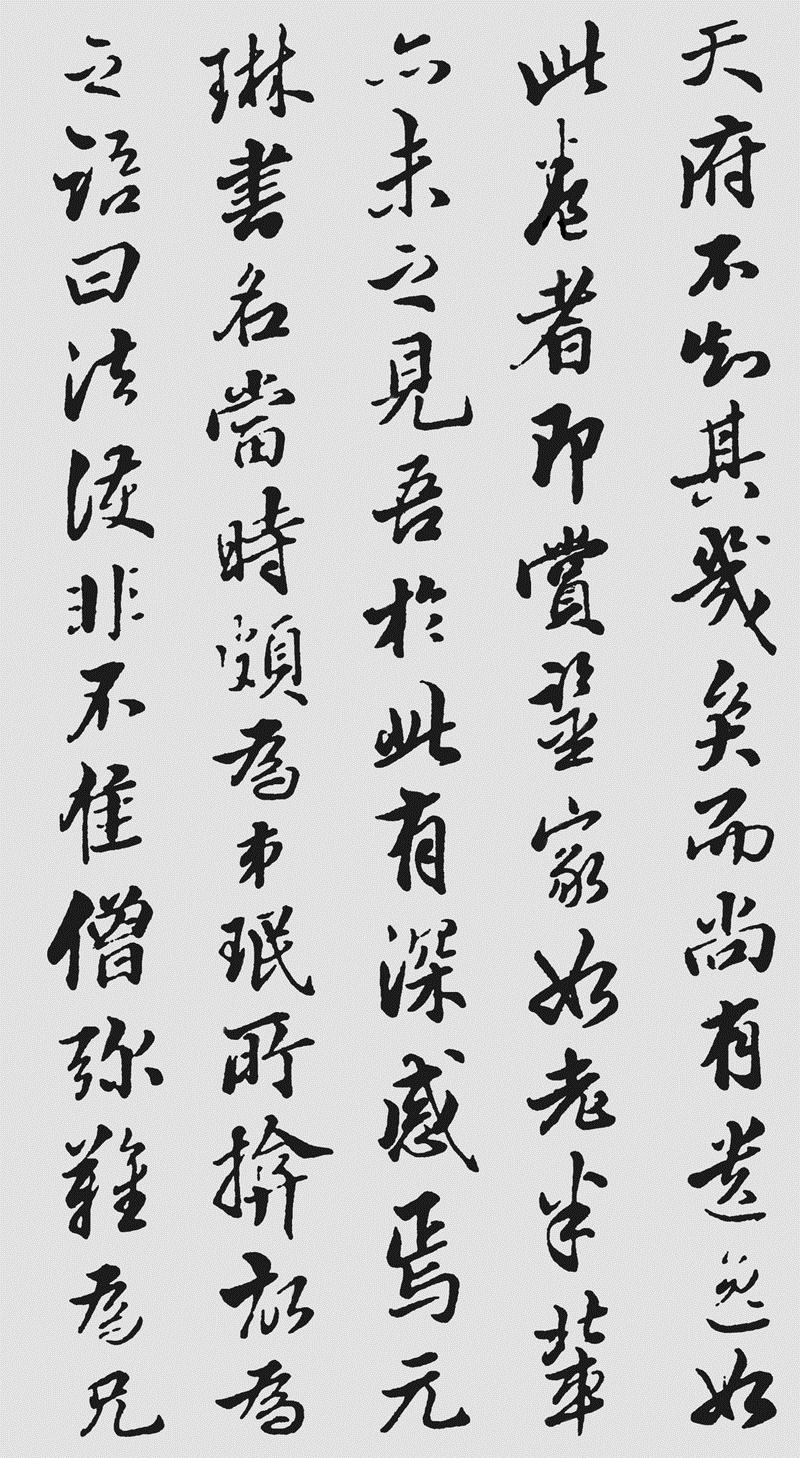 天府不知其幾矣而尚有遺逸如
此卷者即賞鑒家如老米輩
亦未之見吾於此有深感焉元
琳書名當時頗為弟珉所掩故為
之語曰法護非不佳僧彌難為兄